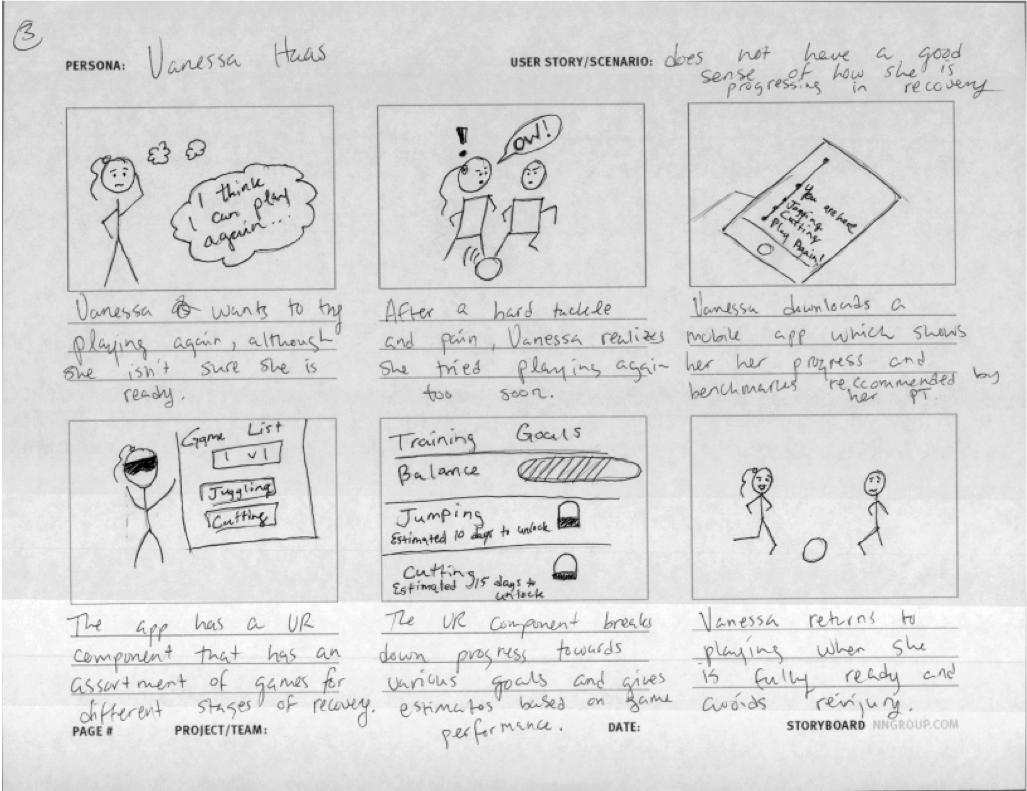 3
PERSONA: Vanessa Haas
USER STORY/SCENARIO: does not have a good
sense of how she is
progressing in recovery
I think
I can play
again...
Vanessa wants to try
playing again, although
she isn't sure she is
ready.
!
OW!
After a hard tackle
and pain, Vanessa realizes
she tried playing again
too soon.
You are here
Jogging
Cutting
Play Again!
Vanessa downloads a
mobile app which shows
her her progress and
benchmarks reccommended by
her PT.
Game List
1 v 1
Juggling
Cutting
The app has a VR
component that has an
assortment of games for
different stages of recovery.
Training Goals
Balance
Jumping
Estimated 10 days to unlock
Cutting
Estimated 15 days to
unlock
The VR component breaks
down progress towards
various goals and gives
estimates based on game
performance.
Vanessa returns to
playing when she
is fully ready and
avoids reinjury.
PAGE # PROJECT/TEAM: DATE: STORYBOARD NNGROUP.COM